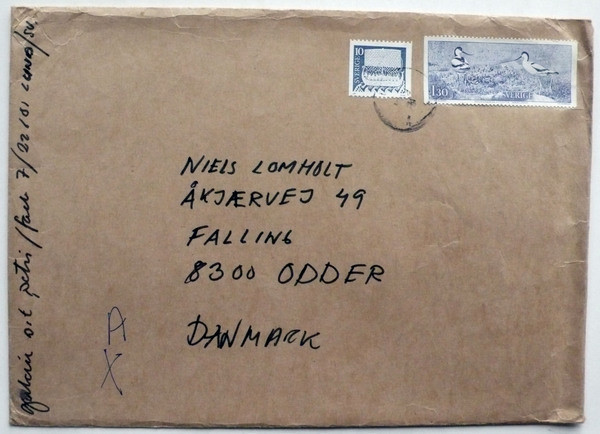 10
SVERIGE
1.30 SVERIGE
NIELS LOMHOLT
ÅKJÆRVEJ 49
FALLING
8300 ODDER
DANMARK
A
X
galerie s:t petri / fack 7 / 22101 LUND / sv.